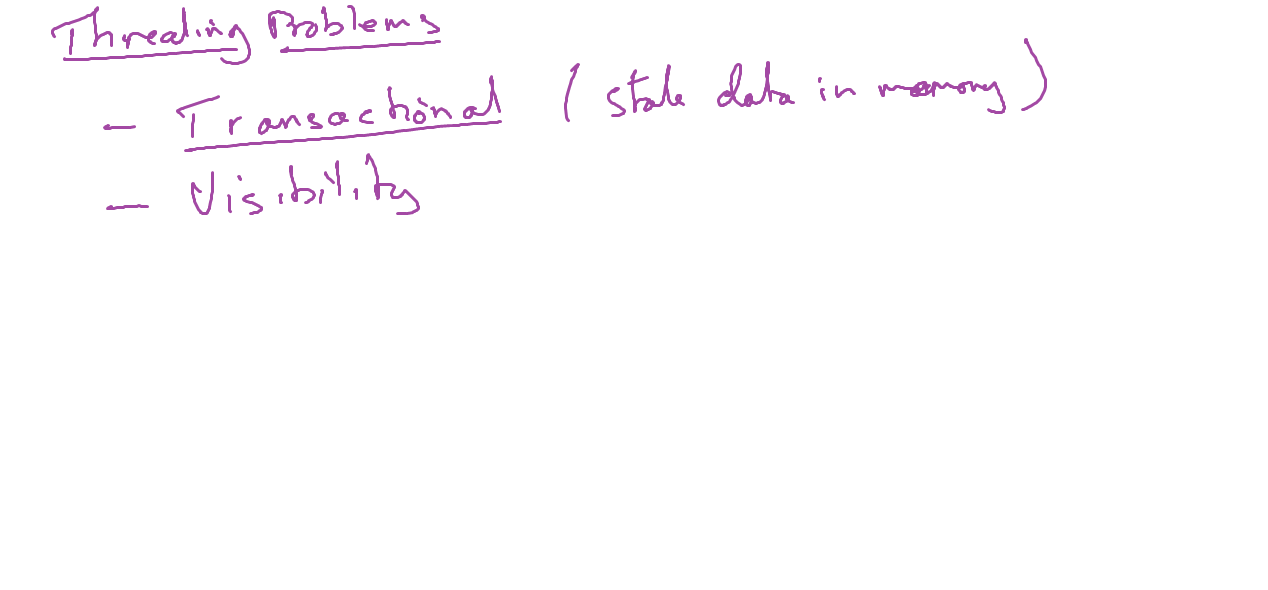 Threading Problems
- Transactional (stale data in memory)
- Visibility